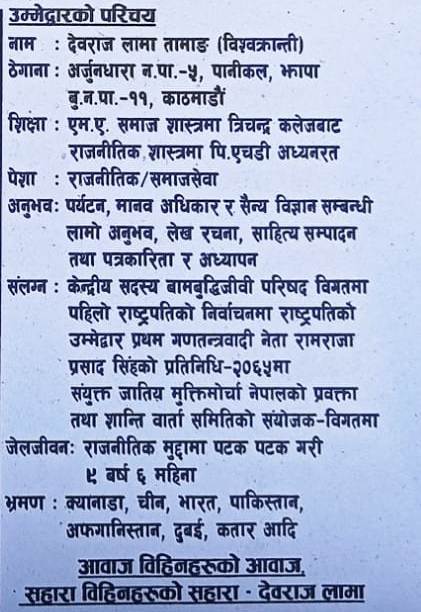 उम्मेद्वारको परिचय
नाम : देवराज लामा तामाङ (विश्वक्रान्ती)
ठेगाना : अर्जुनधारा न.पा.-५, पानीकल, झापा
बु.न.पा.-११, काठमाडौं
शिक्षा : एम.ए. समाज शास्त्रमा त्रिचन्द्र कलेजबाट
राजनीतिक शास्त्रमा पि.एचडी अध्यनरत
पेशा : राजनीतिक/समाजसेवा
अनुभव: पर्यटन, मानव अधिकार र सैन्य विज्ञान सम्बन्धी
लामो अनुभव, लेख रचना, साहित्य सम्पादन
तथा पत्रकारिता र अध्यापन
संलग्न : केन्द्रीय सदस्य बामबुद्धिजीवी परिषद विगतमा
पहिलो राष्ट्रपतिको निर्वाचनमा राष्ट्रपतिको
उम्मेद्वार प्रथम गणतन्त्रवादी नेता रामराजा
प्रसाद सिंहको प्रतिनिधि-२०६५मा
संयुक्त जातिय मुक्तिमोर्चा नेपालको प्रवक्ता
तथा शान्ति वार्ता समितिको संयोजक-विगतमा
जेलजीवन: राजनीतिक मुद्दामा पटक पटक गरी
९ बर्ष ६ महिना
भ्रमण : क्यानाडा, चीन, भारत, पाकिस्तान,
अफगानिस्तान, दुबई, कतार आदि
आवाज विहिनहरुको आवाज,
सहारा विहिनहरुको सहारा - देवराज लामा